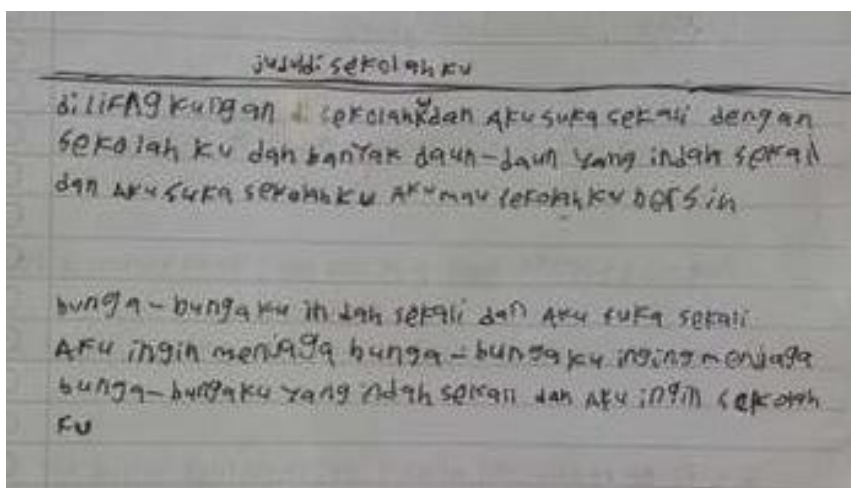 judul: di sekolah ku
di lifAngkungan di sekolahku dan Aku suka sekali dengan
sekolah ku dan banYak daun-daun Yang indah sekali
dan Aku suka sekolahku Aku mau sekolahku bersin
bunga-bungaku indah sekali dan Aku suka sekali
Aku ingin menjaga bunga-bungaku inging menjaga
bunga-bungaku Yang indah sekali dan Aku ingin sekolah
ku